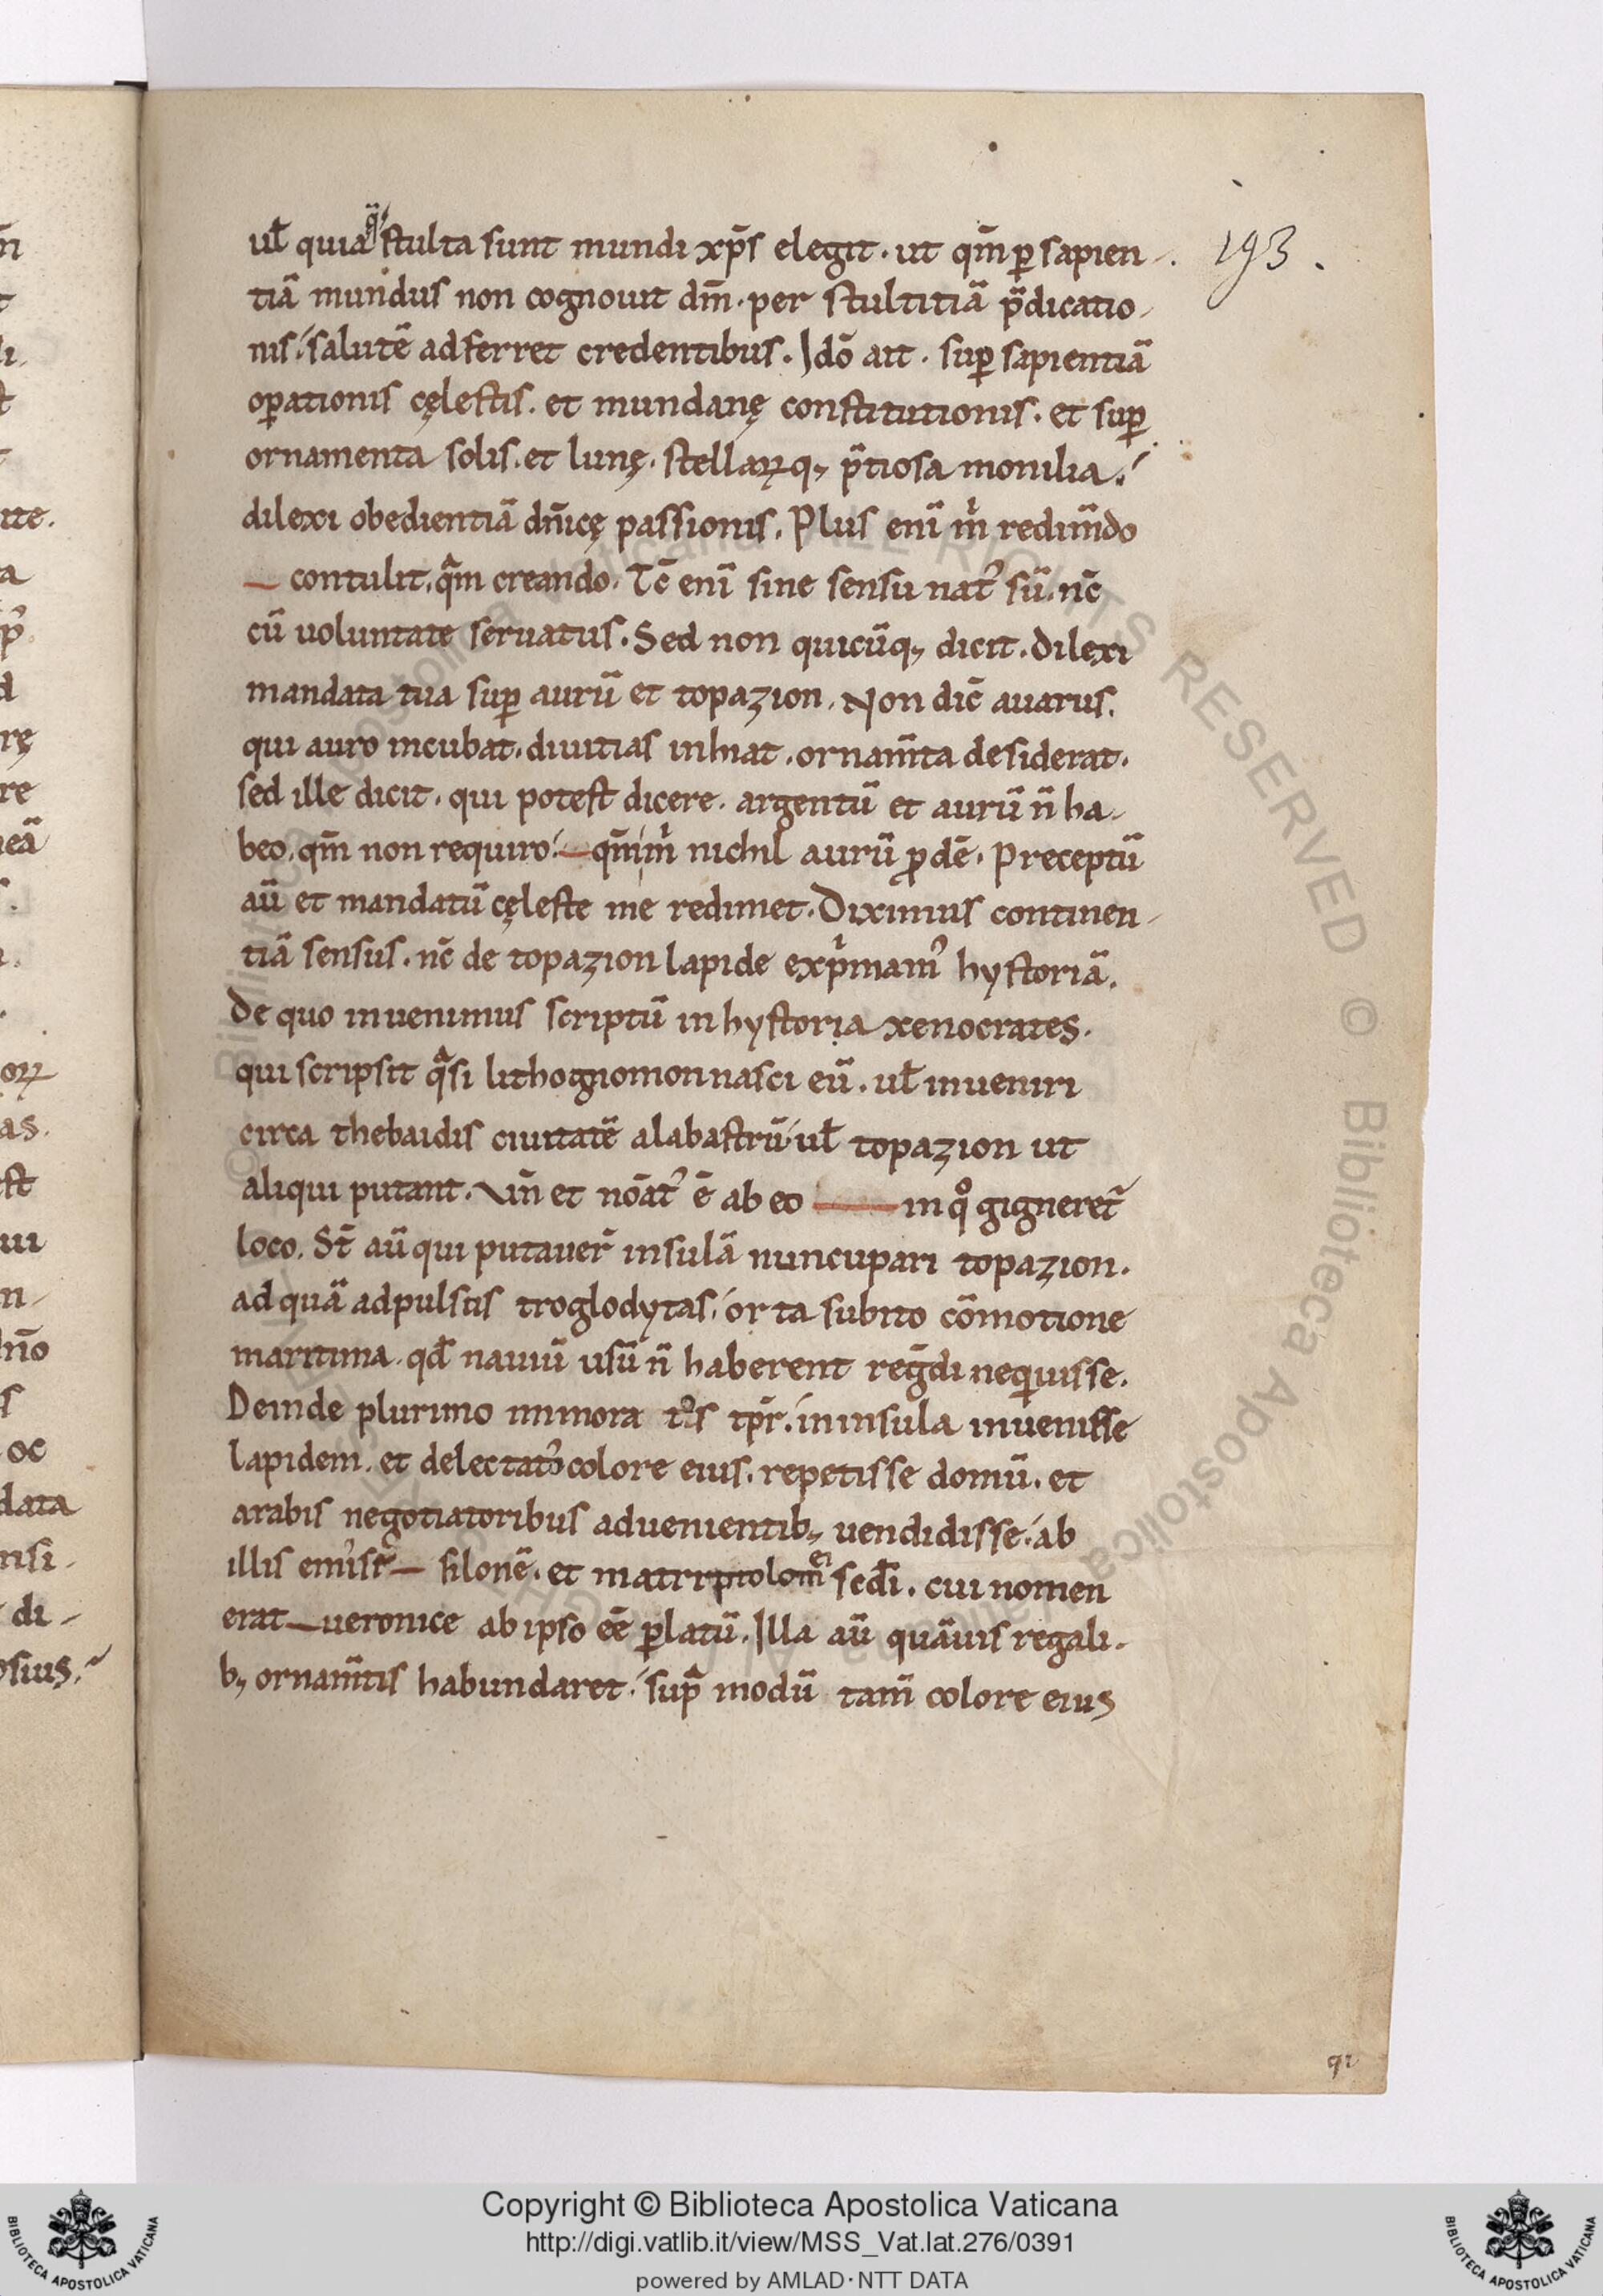 ul̄ quia q̄ stulta sunt mundi xp̄s elegit. ut qm̄ ꝑ sapien-
tiā mundus non cognouit dm̄. per stultitiā p̄dicatio-
nis. salutē adferret credentibus. Idō ait. suꝑ sapientiā
oꝑationis cęlestis. et mundanę constitutionis. et suꝑ
ornamenta solis. et lunę. stellaꝝq; p̄tiosa monilia.
dilexi obedientiā dn̄icę passionis. Plus enī m̍ redim̄do
contulit. qᵃm creando. Tc̄ enī sine sensu nat᾽ sū. nc̄
cū uoluntate seruatus. Sed non quicūq; dicit. dilexi
mandata tua suꝑ aurū et topazion. Non dic̄ auarus.
qui auro incubat. diuitias inhiat. ornam̄ta desiderat.
sed ille dicit. qui potest dicere. argentū et aurū n̄ ha-
beo. qm̄ non requiro. qm̄ m̍ nichil aurū ꝓdē. Preceptū
aū et mandatū cęleste me redimet. Diximus continen-
tiā sensus. nc̄ de topazion lapide exp̍mam᾽ hystoriā.
De quo inuenimus scriptū in hystoria xenocrates.
qui scripsit qᵃsi lithognomon nasci eū. ul̄ inueniri
circa thebaidis ciuitatē alabastrū. ul̄ topazion ut
aliqui putant. Vn̄ et nōat᾽ ē ab eo in qᵒ gigneret᷑
loco. St̄ aū qui putauer̄ insulā nuncupari topazion.
ad quā adpulsus troglodytas. orta subito cōmotione
maritima. qd̄ nauiū usū n̄ haberent reg̅di neqͥuisse.
Deinde plurimo inmora tᵒs tp̄r. in insula inuenisse
lapidem. et delectatᵒs colore eius. repetisse domū. et
arabis negotiatoribus aduenientib; uendidisse. ab
illis filonē. et matri ptolom̄ei scd̄i. cui nomen
erat ueronice ab ipso eē ꝑlatū. Illa aū quāuis regali-
b; ornam̄tis habundaret. supᵃ modū tam̄ colore eius
193.
Copyright © Biblioteca Apostolica Vaticana
http://digi.vatlib.it/view/MSS_Vat.lat.276/0391
powered by AMLAD·NTT DATA